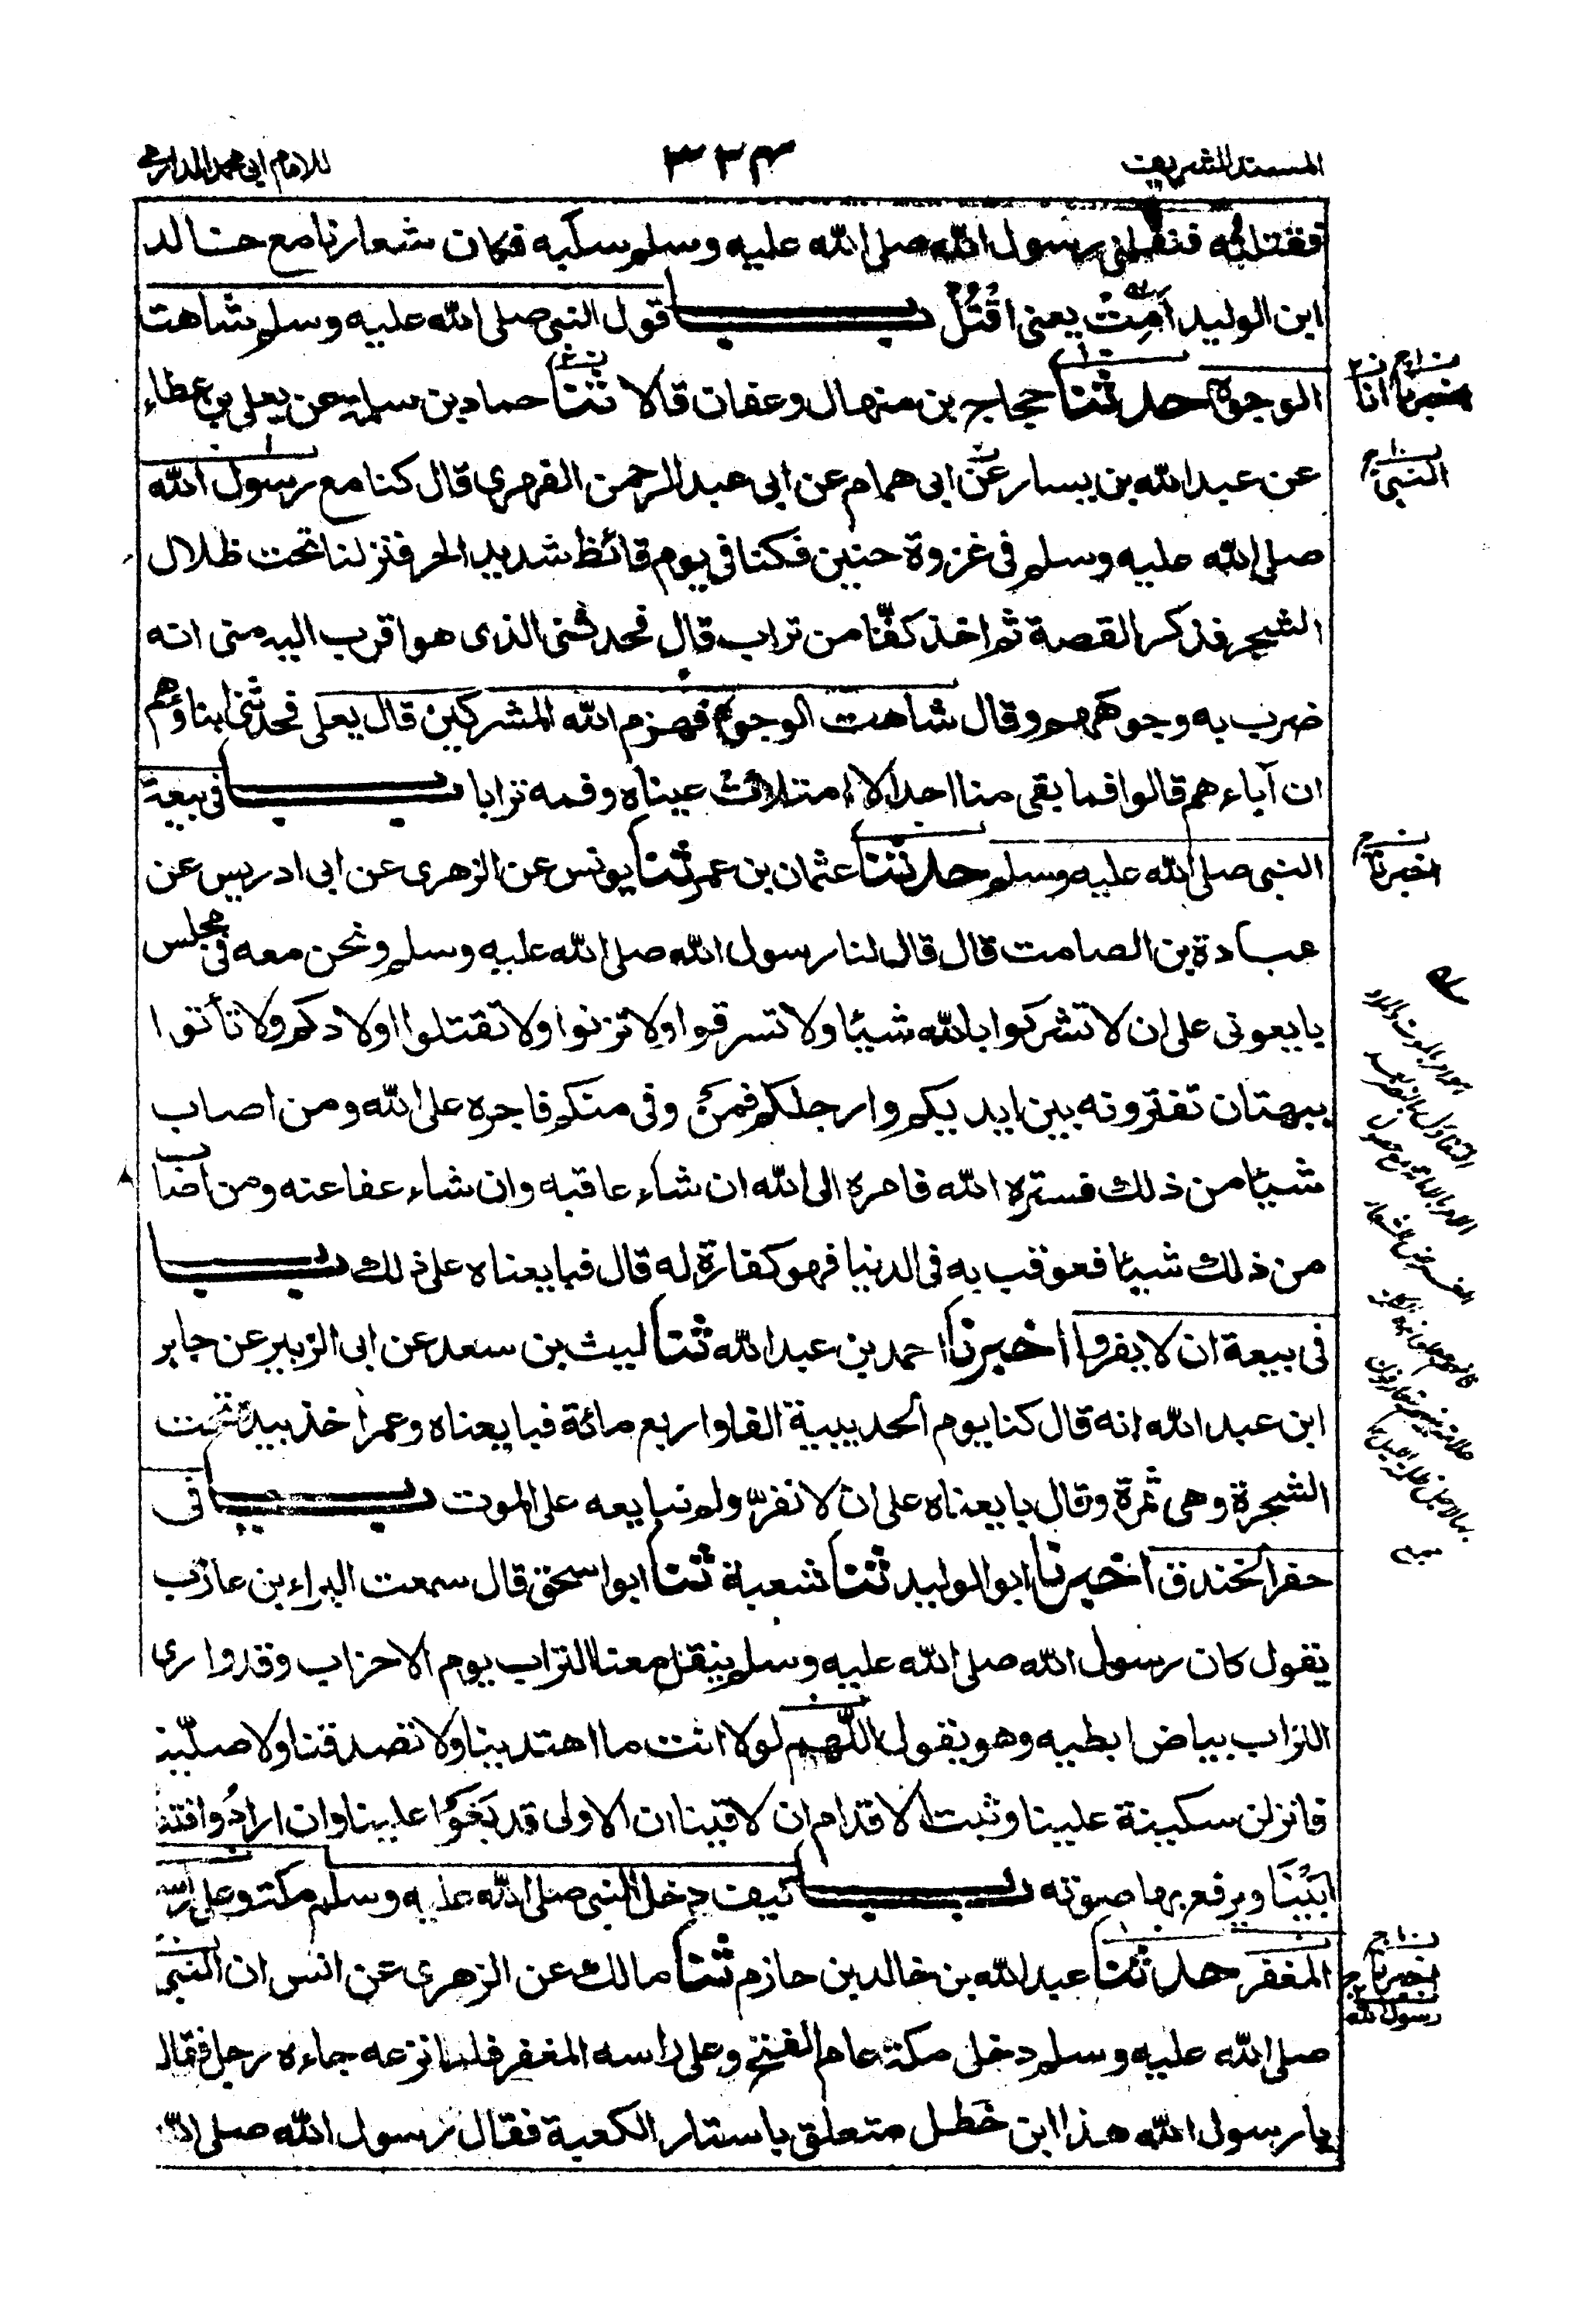 المسند الشريف
٣٣٤
للامام ابى محمد الدارمى
فقتلته فنفلنى رسول الله صلى الله عليه وسلم سلبه فكان شعارنا مع خالد
ابن الوليد اَمِتْ يعنى اُقْتُلْ باب قول النبى صلى الله عليه وسلم شاهت
الوجوه حدثنا حجاج بن منهال وعفان قالا ثنا حماد بن سلمة عن يعلى بن عطاء
عن عبد الله بن يسار عن ابى همام عن ابى عبد الرحمن الفهرى قال كنا مع رسول الله
صلى الله عليه وسلم فى غزوة حنين فكنا فى يوم قائظ شديد الحر فنزلنا تحت ظلال
الشجر فذكر القصة ثم اخذ كفّا من تراب قال فحدثنى الذى هو اقرب اليه منى انه
ضرب به وجوههم وقال شاهت الوجوه فهزم الله المشركين قال يعلى فحدثنى ابناؤهم
ان آباءهم قالوا فما بقى منا احد الا امتلائت عيناه وفمه ترابا باب فى بيعة
النبى صلى الله عليه وسلم حدثنا عثمان بن عمر ثنا يونس عن الزهرى عن ابى ادريس عن
عبادة بن الصامت قال قال لنا رسول الله صلى الله عليه وسلم ونحن معه فى مجلس
بايعونى على ان لا تشركوا بالله شيئا ولا تسرقوا ولا تزنوا ولا تقتلوا اولادكم ولا تأتوا
ببهتان تفترونه بين ايديكم وارجلكم فمن وفى منكم فاجره على الله ومن اصاب
شيئا من ذلك فستره الله فامره الى الله ان شاء عاقبه وان شاء عفا عنه ومن اصاب
من ذلك شيئا فعوقب به فى الدنيا فهو كفارة له قال فبايعناه على ذلك باب
فى بيعة ان لا يفروا اخبرنا احمد بن عبد الله ثنا ليث بن سعد عن ابى الزبير عن جابر
ابن عبد الله انه قال كنا يوم الحديبية الفا واربع مائة فبايعناه وعمر اخذ بيده تحت
الشجرة وهى ثمرة وقال بايعناه على ان لا نفرّ ولم نبايعه على الموت باب فى
حفر الخندق اخبرنا ابو الوليد ثنا شعبة ثنا ابو اسحق قال سمعت البراء بن عازب
يقول كان رسول الله صلى الله عليه وسلم ينقل معنا التراب يوم الاحزاب وقد وارى
التراب بياض ابطيه وهو يقول اللّٰهم لولا انت ما اهتدينا ولا تصدقنا ولا صلّينا
فانزلن سكينة علينا وثبت الاقدام ان لاقينا ان الاولى قد بَغَوْا علينا وان ارادُوا فتنة
اَبَيْنَا ويرفع بها صوته باب كيف دخل النبى صلى الله عليه وسلم مكة وعلى راسه
المغفر حدثنا عبد الله بن خالد بن حازم ثنا مالك عن الزهرى عن انس ان النبى
صلى الله عليه وسلم دخل مكة عام الفتح وعلى راسه المغفر فلما نزعه جاءه رجل فقال
يا رسول الله هذا ابن خَطَل متعلق باستار الكعبة فقال رسول الله صلى الله
اخبرنا انا
النبى
اخبرنا
اخبرنا
رسول الله